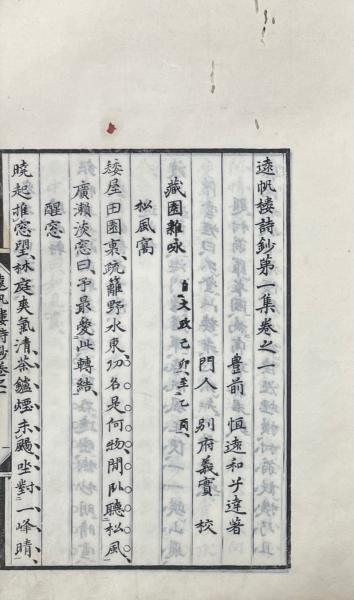 遠帆楼詩鈔第一集卷之一
豊前 恒遠和子達著
門人 別府義實 校
藏園雜咏 自文政己卯至乙酉
松風窩
矮屋田園裏疏籬野水東功名是何物閒臥聽松風
廣瀬淡窓曰予最愛此轉結
醒窓
曉起推窓望林庭爽氣清茶鑪煙未颺坐對一峰晴
遠帆楼詩鈔卷之一